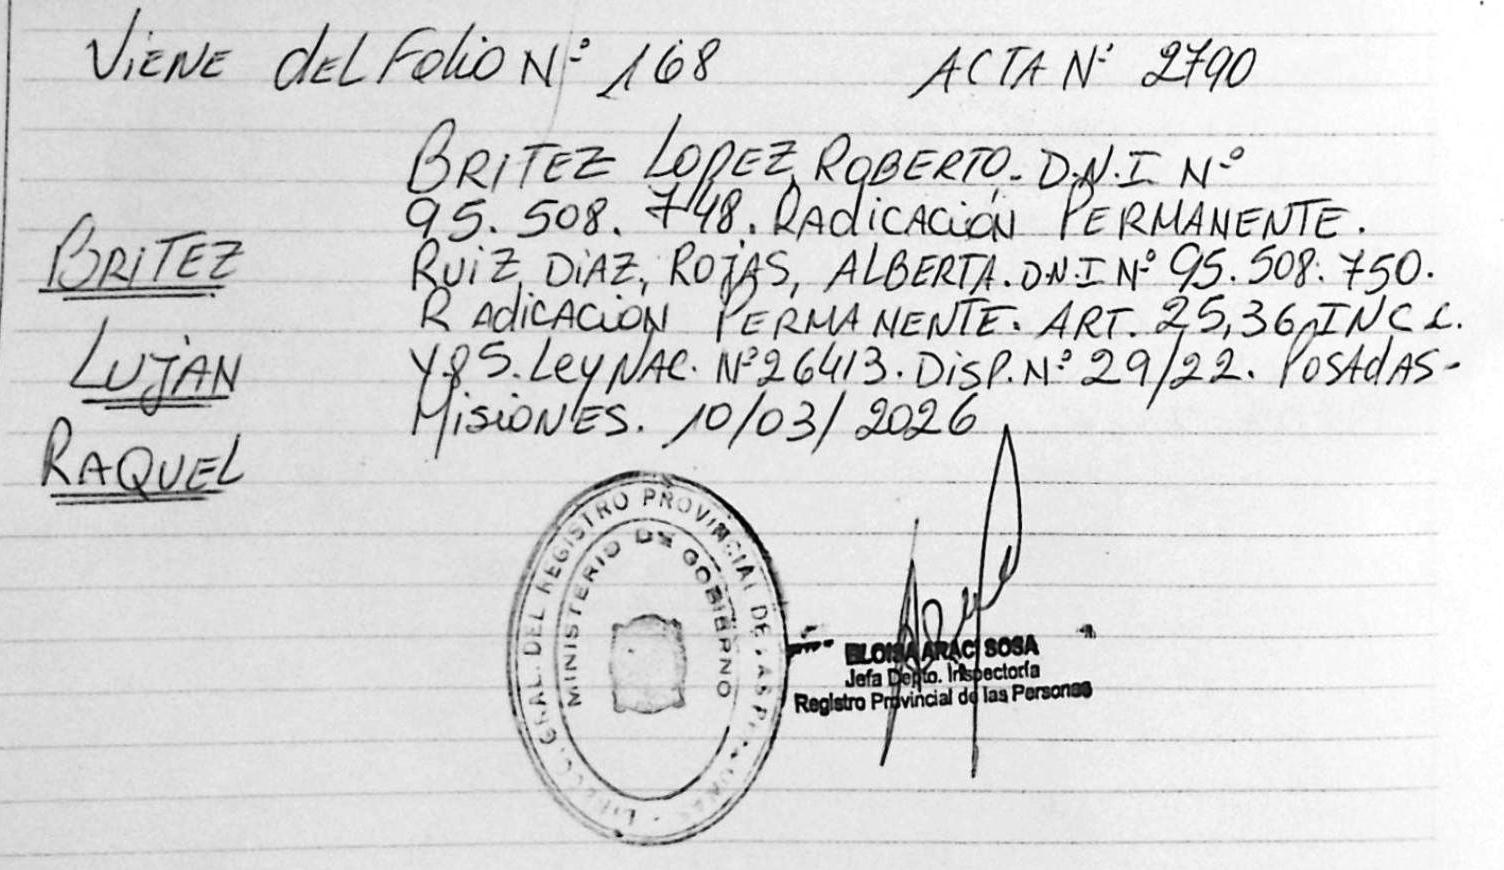 Viene del Folio Nº 168 ACTA Nº 2790
BRITEZ LOPEZ, ROBERTO. D.N.I Nº
95.508.748. RADICACIÓN PERMANENTE.
BRITEZ
RUIZ DIAZ, ROJAS, ALBERTA. D.N.I Nº 95.508.750.
RADICACIÓN PERMANENTE. ART. 25,36, INC C.
LUJAN
Y 85. Ley NAC. Nº 26413. DISP. Nº 29/22. POSADAS-
MISIONES. 10/03/2026
RAQUEL
GRAL. DEL REGISTRO PROVINCIAL DE
MINISTERIO DE GOBIERNO
ELOISA ARACI SOSA
Jefa Depto. Inspectoría
Registro Provincial de las Personas